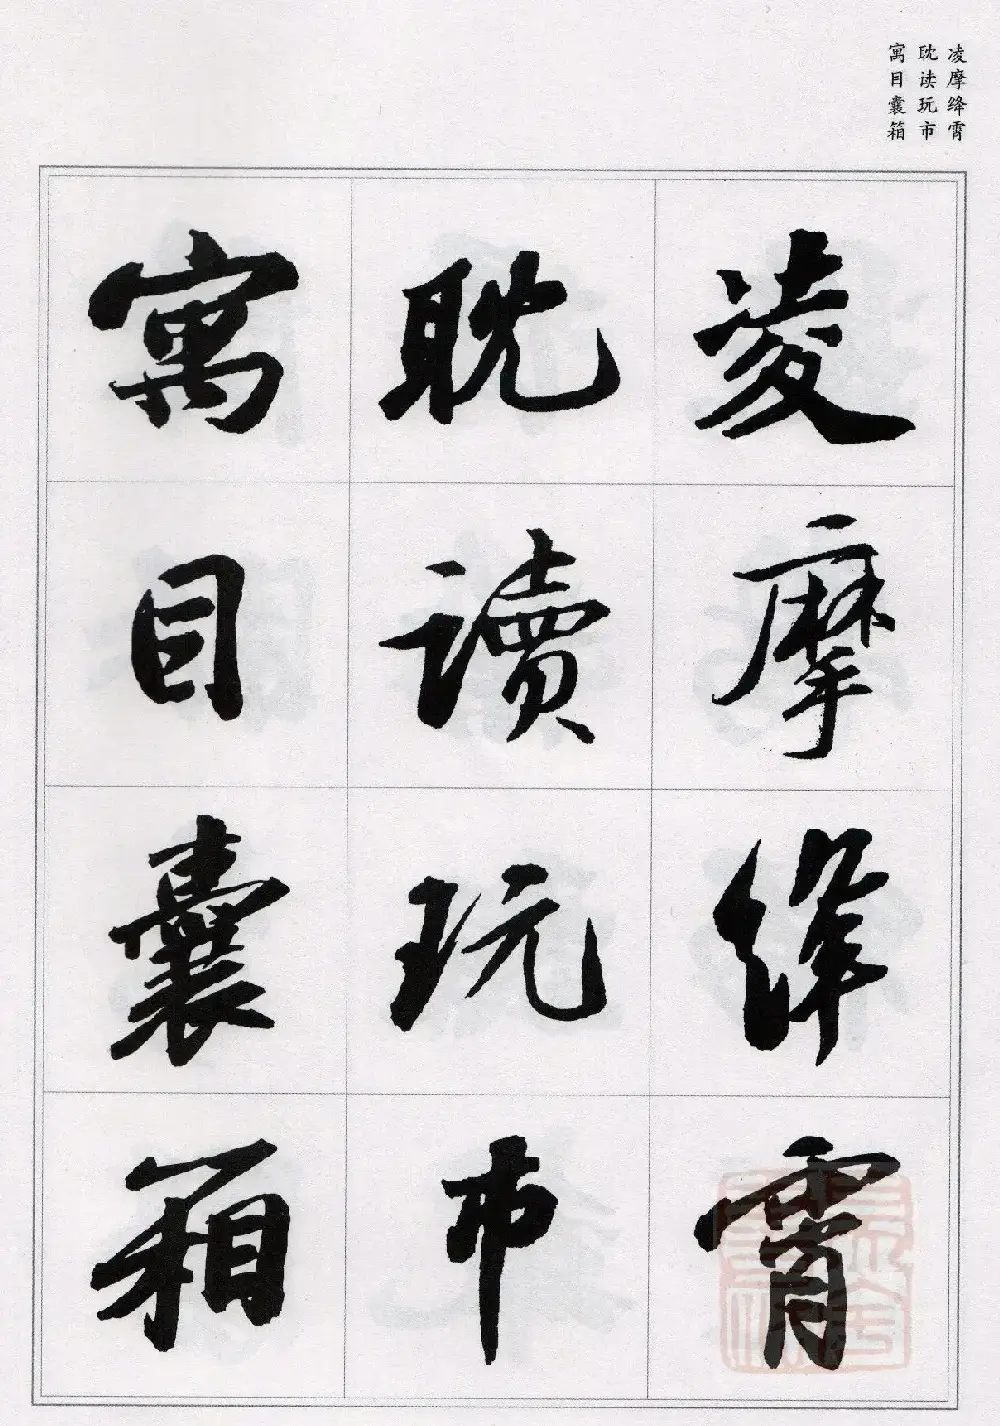 凌摩绛霄
耽读玩市
寓目囊箱
凌摩绛霄
耽讀玩市
寓目囊箱